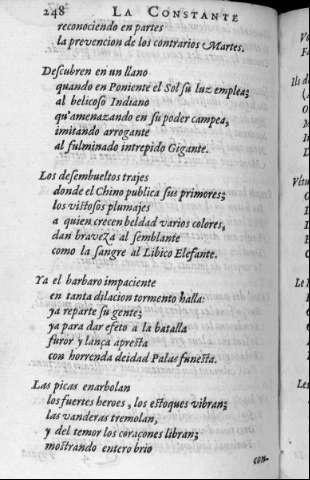 248 LA CONSTANTE
reconociendo en partes
la prevencion de los contrarios Martes.
Descubren en un llano
quando en Poniente el Sol sù luz emplea;
al belicoso Indiano
qu'amenazando en su poder campea,
imitando arrogante
al fulminado intrepido Gigante.
Los desembueltos trajes
donde el Chino publica sus primores;
los vistosos plumajes
a quien crecen beldad varios colores,
dan braveza al semblante
como la sangre al Libico Elefante.
Ya el barbaro impaciente
en tanta dilacion tormento halla:
ya reparte su gente;
ya para dar efeto a la batalla
furor y lança apresta
con horrenda deidad Palas funesta.
Las picas enarbolan
los fuertes heroes, los estoques vibran;
las vanderas tremolan,
y del temor los coraçones libran;
mostrando entero brio
con-